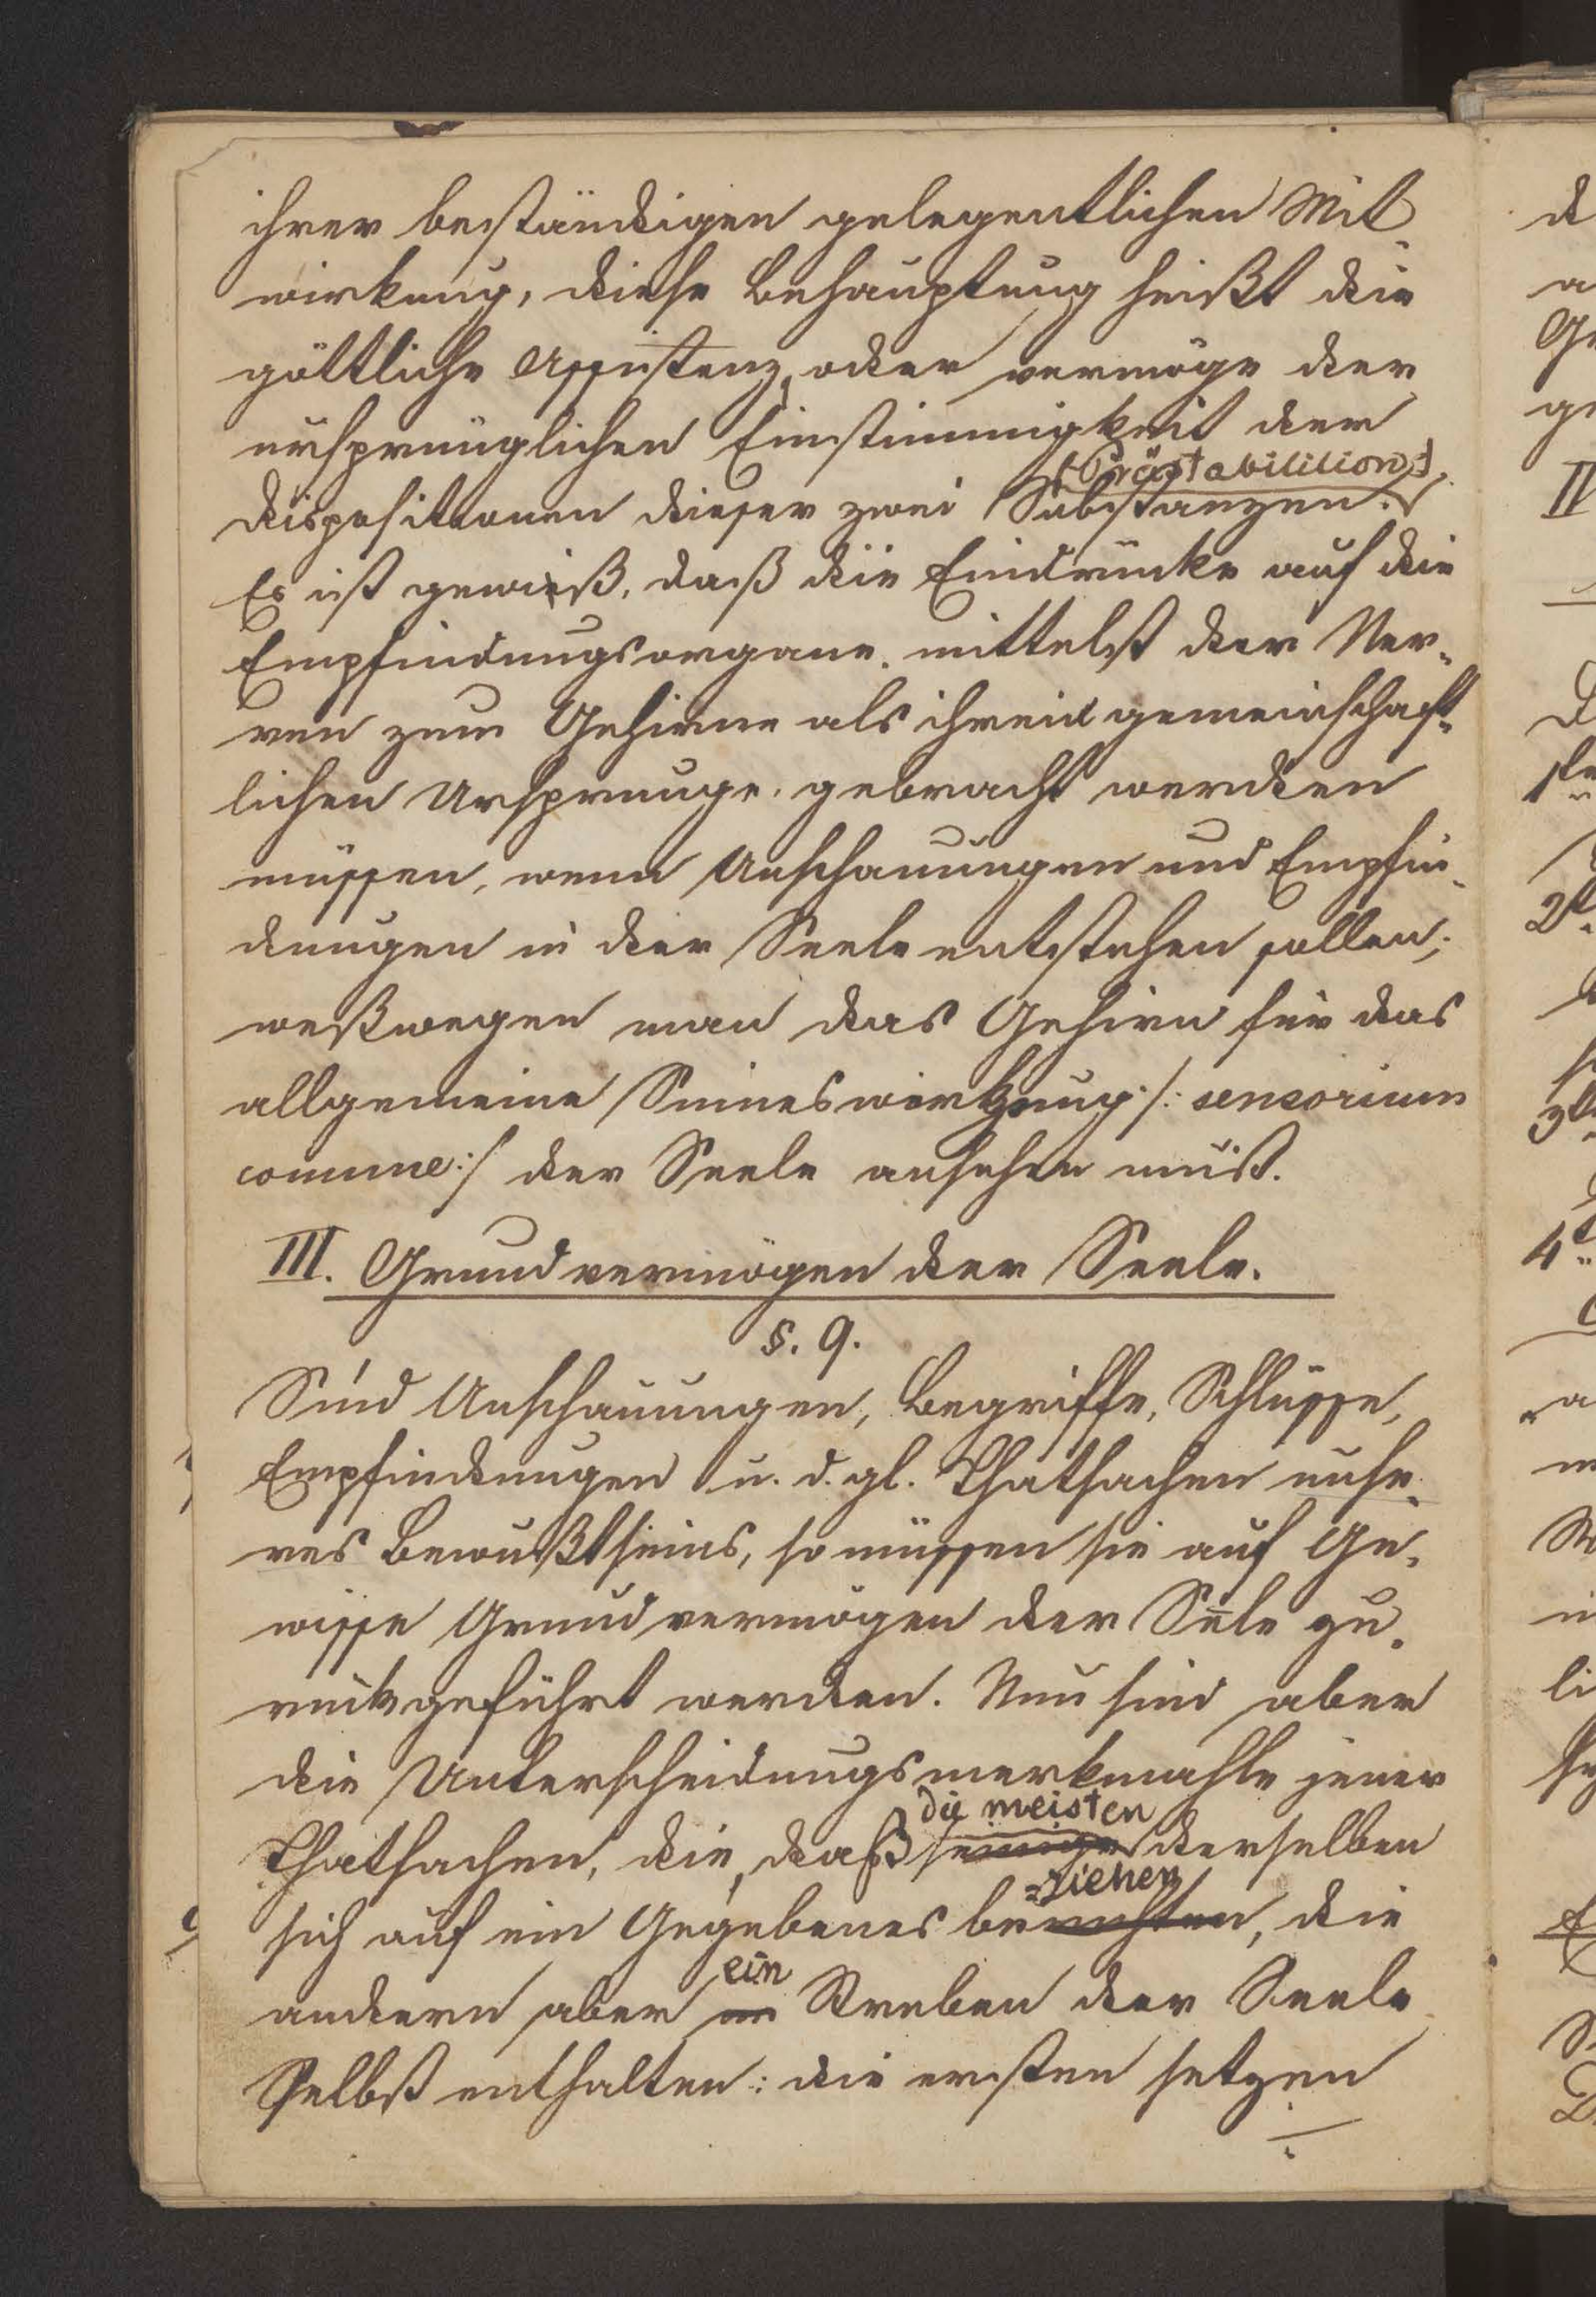 ihrer beständigen gelegentlichen Mit-
wirkung, diese Behauptung heißt die
göttliche Assistenz, oder vermöge der
ursprünglichen Einstimmigkeit der
(Prästabilition).
Dispositionen dieser zwei Substanzen.
Es ist gewiß, daß die Eindrücke auf die
Empfindungsorgane mittelst der Ner-
ven zum Gehirne als ihrem gemeinschaft-
lichen Ursprunge, gebracht werden
müssen, wenn Anschauungen und Empfin-
dungen in der Seele entstehen sollen;
weßwegen man das Gehirn für das
allgemeine Sinneswerkzeug /: sensorium
comune :/ der Seele ansehen muß.
III. Grundvermögen der Seele.
§. 9.
Sind Anschauungen, Begriffe, Schlüsse,
Empfindungen u. d. gl. Thatsachen unse-
res Bewußtseins, so müssen sie auf Ge-
wisse Grundvermögen der Seele zu-
rückgeführt werden. Nun sind aber
die Unterscheidungsmerkmahle jener
die meisten
Thatsachen, die, daß einige derselben
=ziehen
sich auf ein Gegebenes beruhten, die
ein
andern aber im Streben der Seele
Selbst enthalten: die ersten setzen
d
a
Ge
ge
IV
D
1te
2t
3t
4t
a
W
li